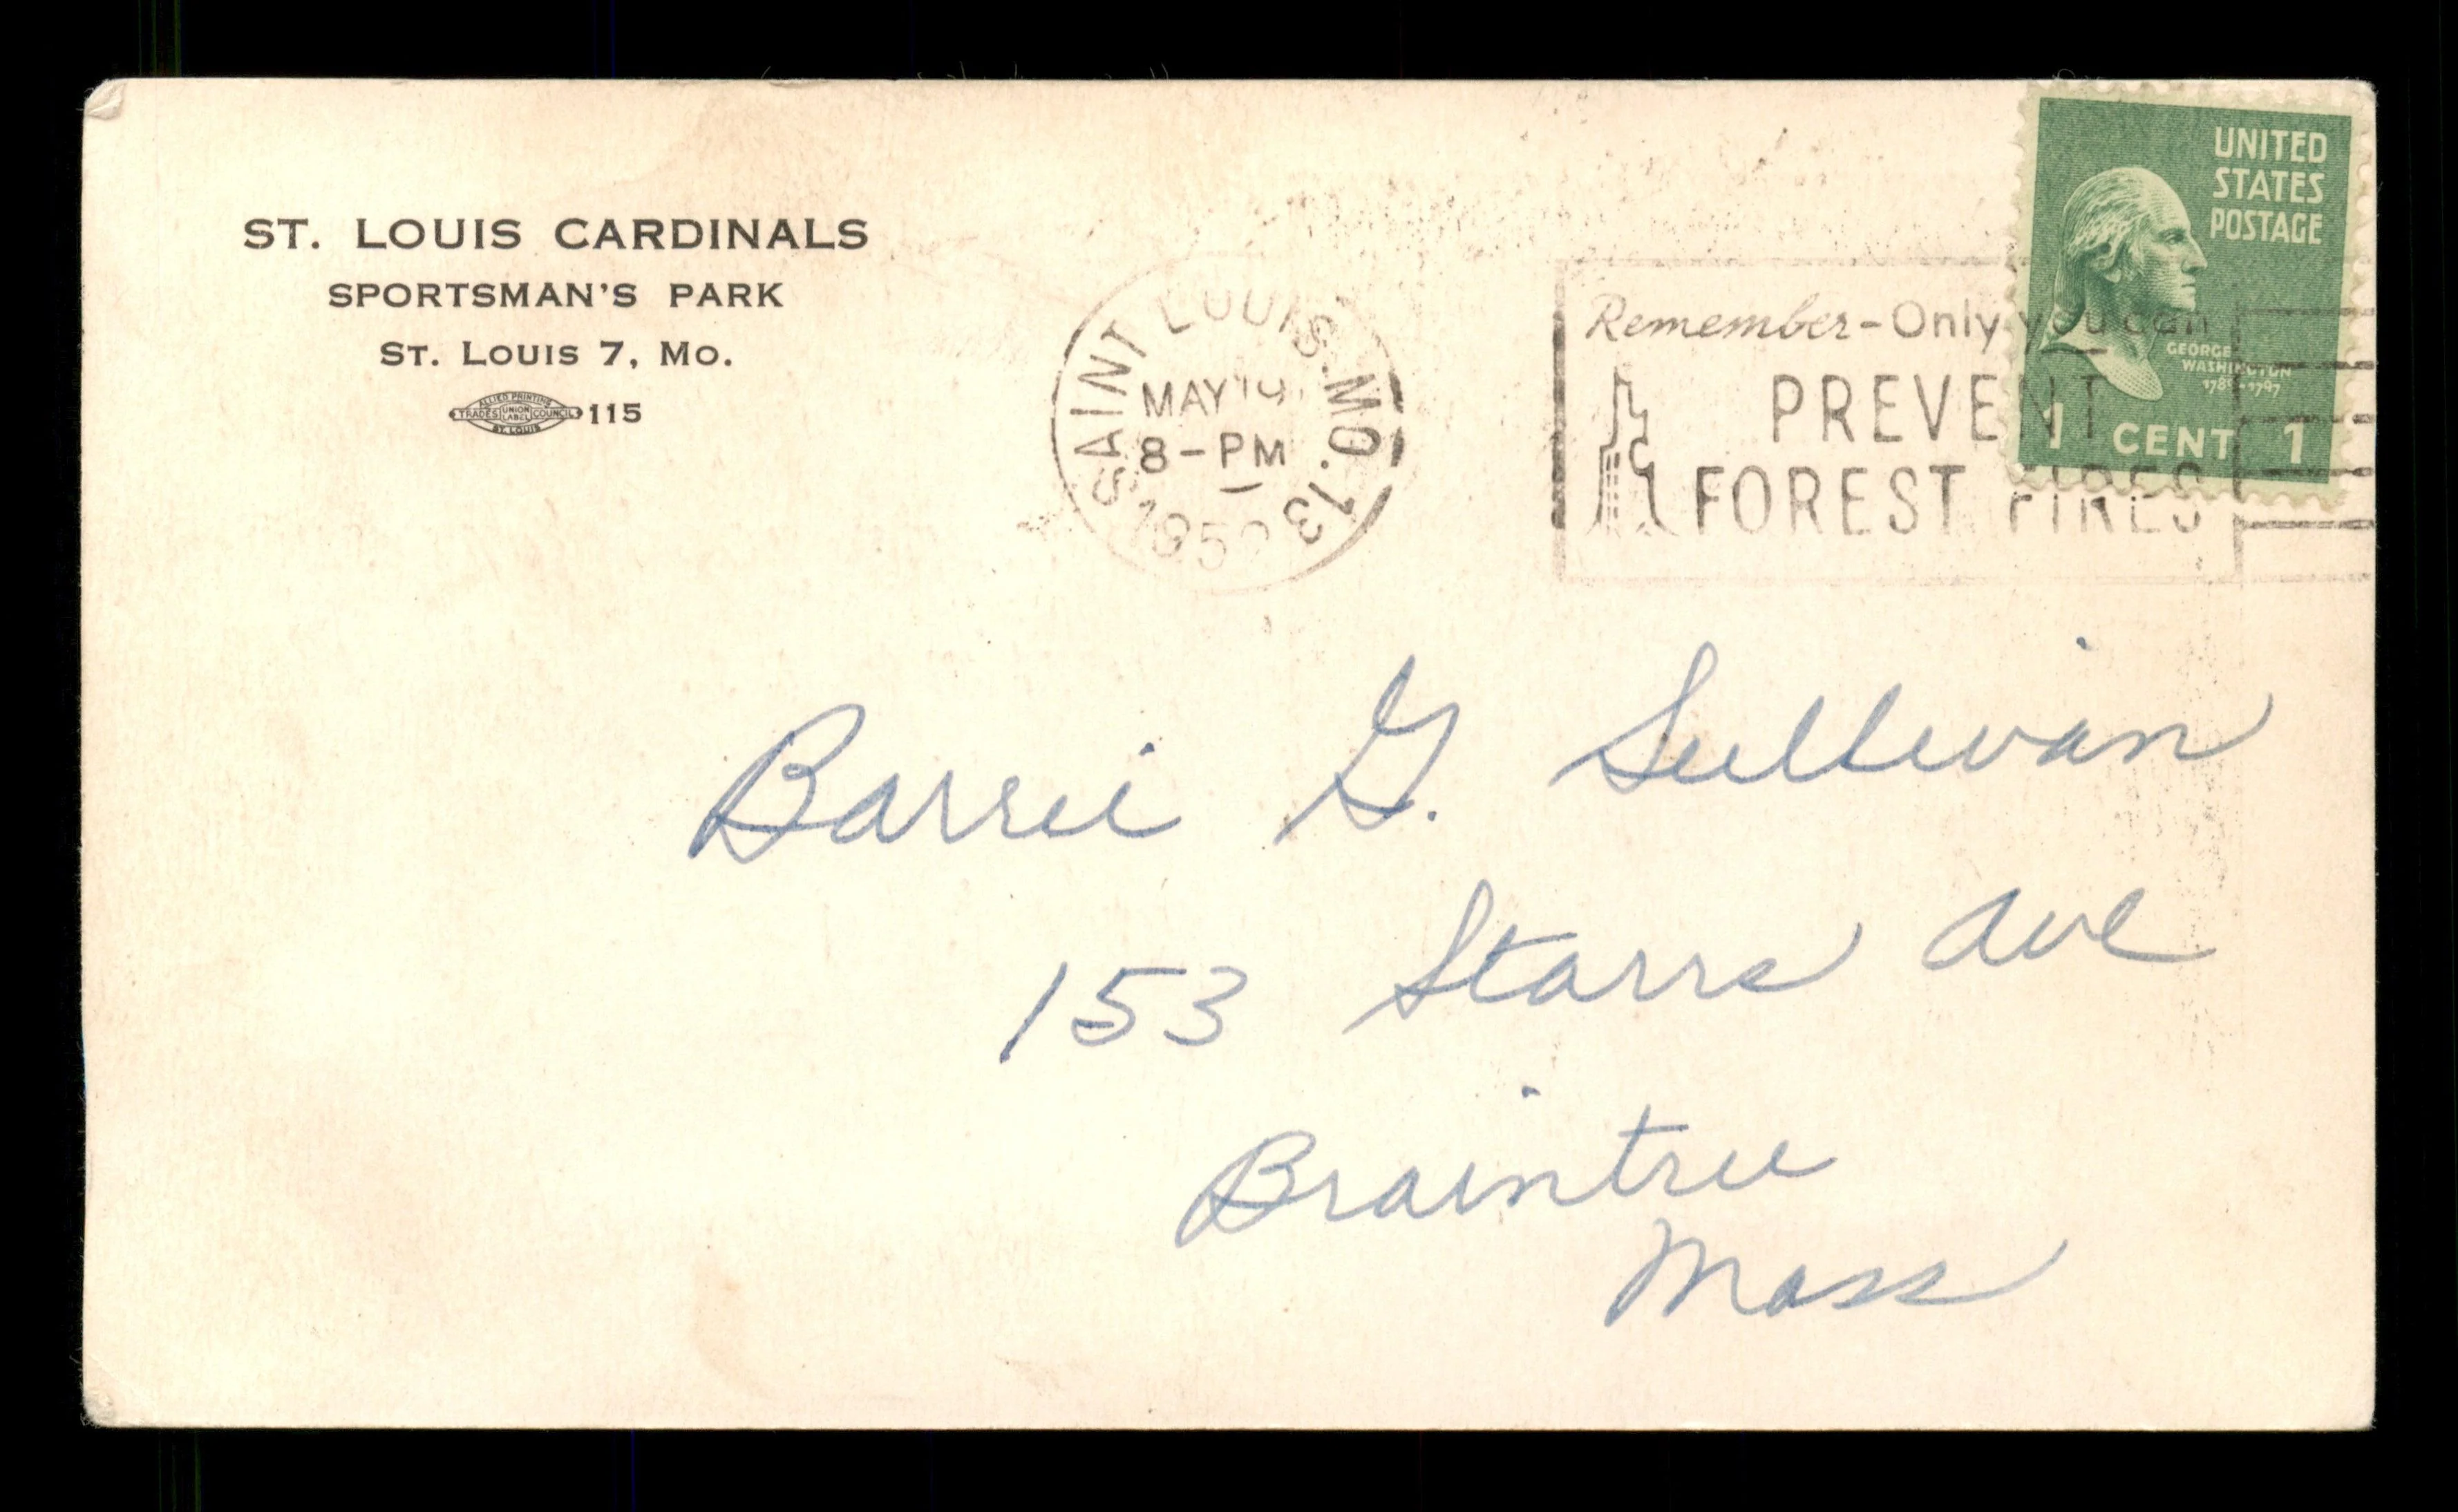 ST. LOUIS CARDINALS
SPORTSMAN'S PARK
ST. LOUIS 7, MO.
ALLIED PRINTING
TRADES UNION LABEL COUNCIL
ST. LOUIS
115
SAINT LOUIS, MO. 13
MAY 19
8-PM
Remember-Only you can
PREVENT
FOREST FIRES
UNITED
STATES
POSTAGE
GEORGE
WASHINGTON
1789-1797
1 CENT 1
Barrie G. Sullivan
153 Starrs Ave
Braintree
Mass